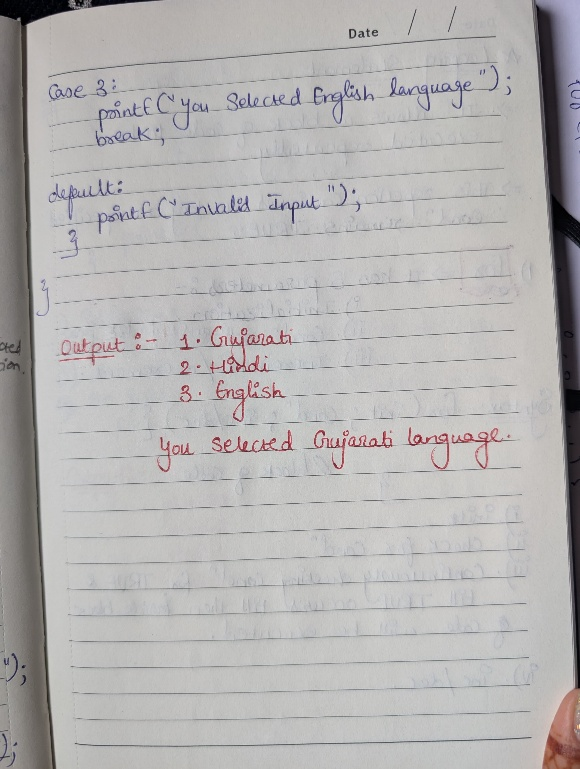 Date / /
Case 3:
printf("You Selected English language");
break;
default:
printf("Invalid Input");
}
}
Output :- 1. Gujarati
2. Hindi
3. English
You selected Gujarati language.
");
);